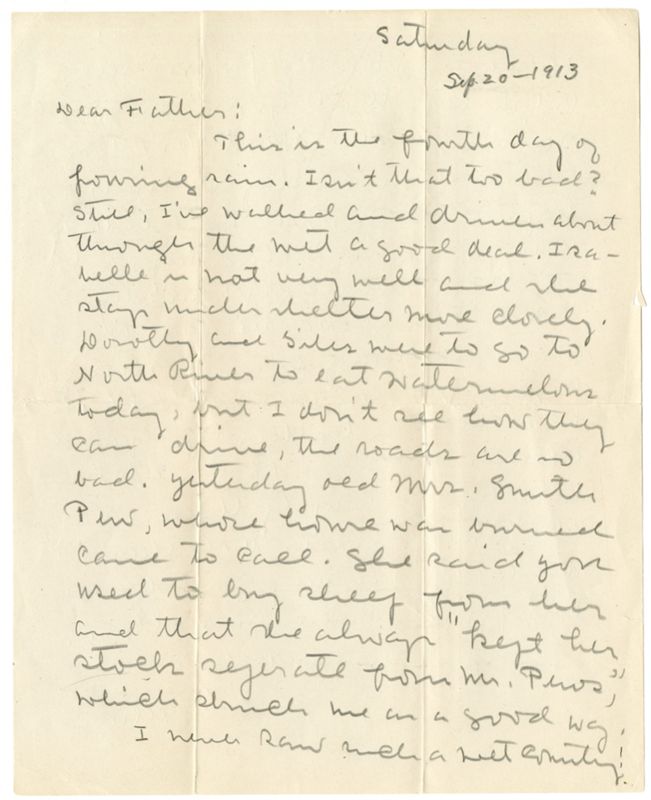 Saturday
Sep. 20-1913
Dear Father:
This is the fourth day of
pouring rain. Isn't that too bad?
Still, I've walked and driven about
through the wet a good deal. Isa-
belle is not very well and she
stays under shelter more closely.
Dorothy and Giles were to go to
North River to eat watermelons
today, but I don't see how they
can drive, the roads are so
bad. Yesterday old Mrs. Smith
Pew, whose house was burned
came to call. She said you
used to buy sheep from her
and that she always "kept her
stock seperate from Mr. Pew's,"
which struck me as a good way.
I never saw such a wet country!